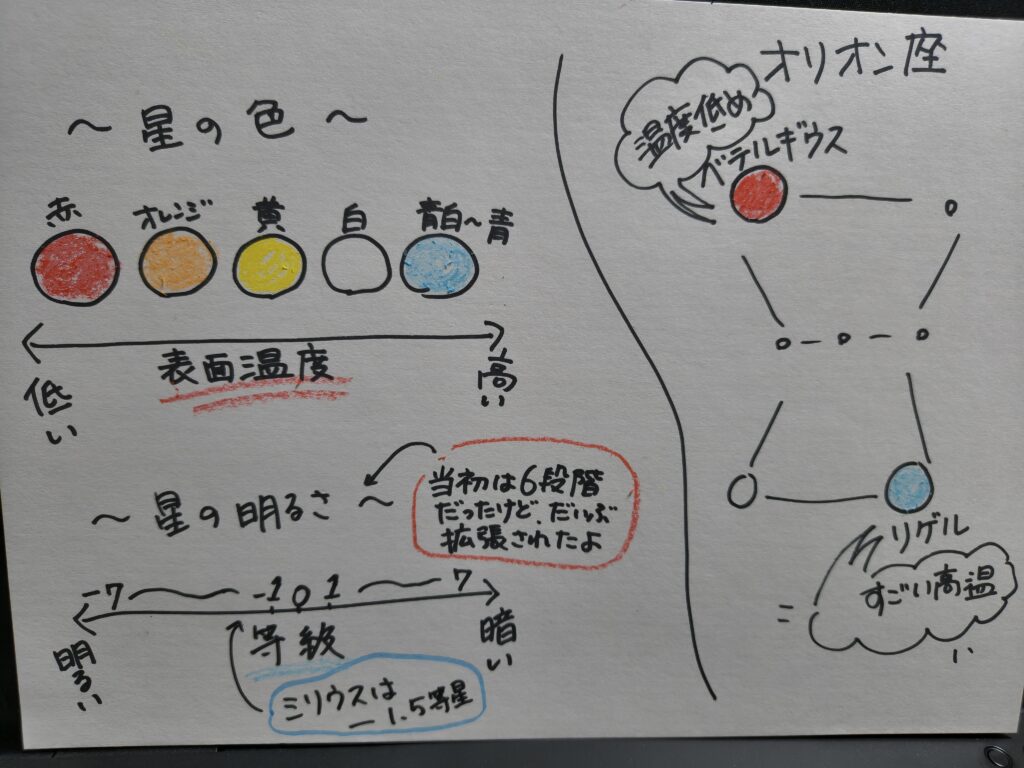 ～ 星の色 ～
赤 オレンジ 黄 白 青白～青
表面温度
低い 高い
～ 星の明るさ ～
当初は6段階
だったけど、だいぶ
拡張されたよ
-7 -1 0 1 7
等級
明るい 暗い
ミリウスは
-1.5等星
オリオン座
温度低め
ベテルギウス
リゲル
すごい高温